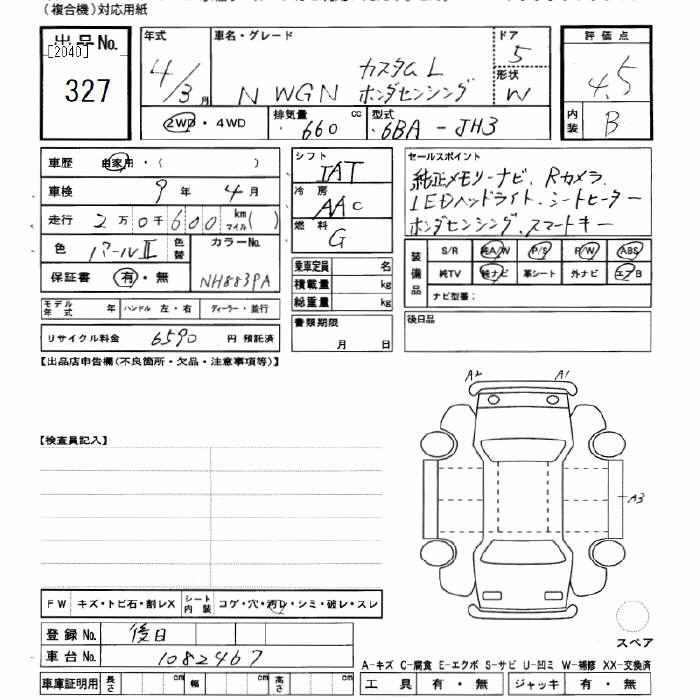 (複合機)対応用紙
出品No.
[2040]
327
年式
4/3月
車名・グレード
カスタムL
N WGN ホンダセンシング
ドア
5
形状
W
評価点
4.5
内装
B
2WD・4WD
排気量
660 cc
型式
6BA-JH3
車歴 自家用・( )
車検 9年 4月
走行 2万0千600 km マイル( )
色 パールII 色替
カラーNo.
NH883PA
保証書 有・無
モデル年式 年 ハンドル 左・右 ディーラー・並行
リサイクル料金 6590 円 預託済
シフト
IAT
冷房
AAC
燃料
G
乗車定員 名
積載量 kg
総重量 kg
書類期限
月 日
セールスポイント
純正メモリーナビ、Rカメラ
LEDヘッドライト、シートヒーター
ホンダセンシング、スマートキー
装備品
S/R 純A/W P/S P/W ABS
純TV 純ナビ 革シート 外ナビ エアB
ナビ型番:
後日品
【出品店申告欄(不良箇所・欠品・注意事項等)】
A2 A1
【検査員記入】
A3
FW キズ・トビ石・割レX シート内装 コゲ・穴・汚レ・シミ・破レ・スレ
登録No. 後日
車台No. 1082467
スペア
A-キズ C-腐食 E-エクボ S-サビ U-凹ミ W-補修 XX-交換済
車庫証明用 長さ cm 幅 cm 高さ cm
工具 有・無 ジャッキ 有・無